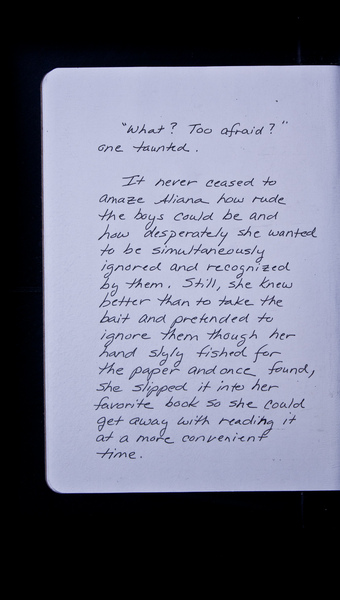 "What? Too afraid?"
one taunted.
It never ceased to
amaze Aliana how rude
the boys could be and
how desperately she wanted
to be simultaneously
ignored and recognized
by them. Still, she knew
better than to take the
bait and pretended to
ignore them though her
hand slyly fished for
the paper and once found,
she slipped it into her
favorite book so she could
get away with reading it
at a more convenient
time.